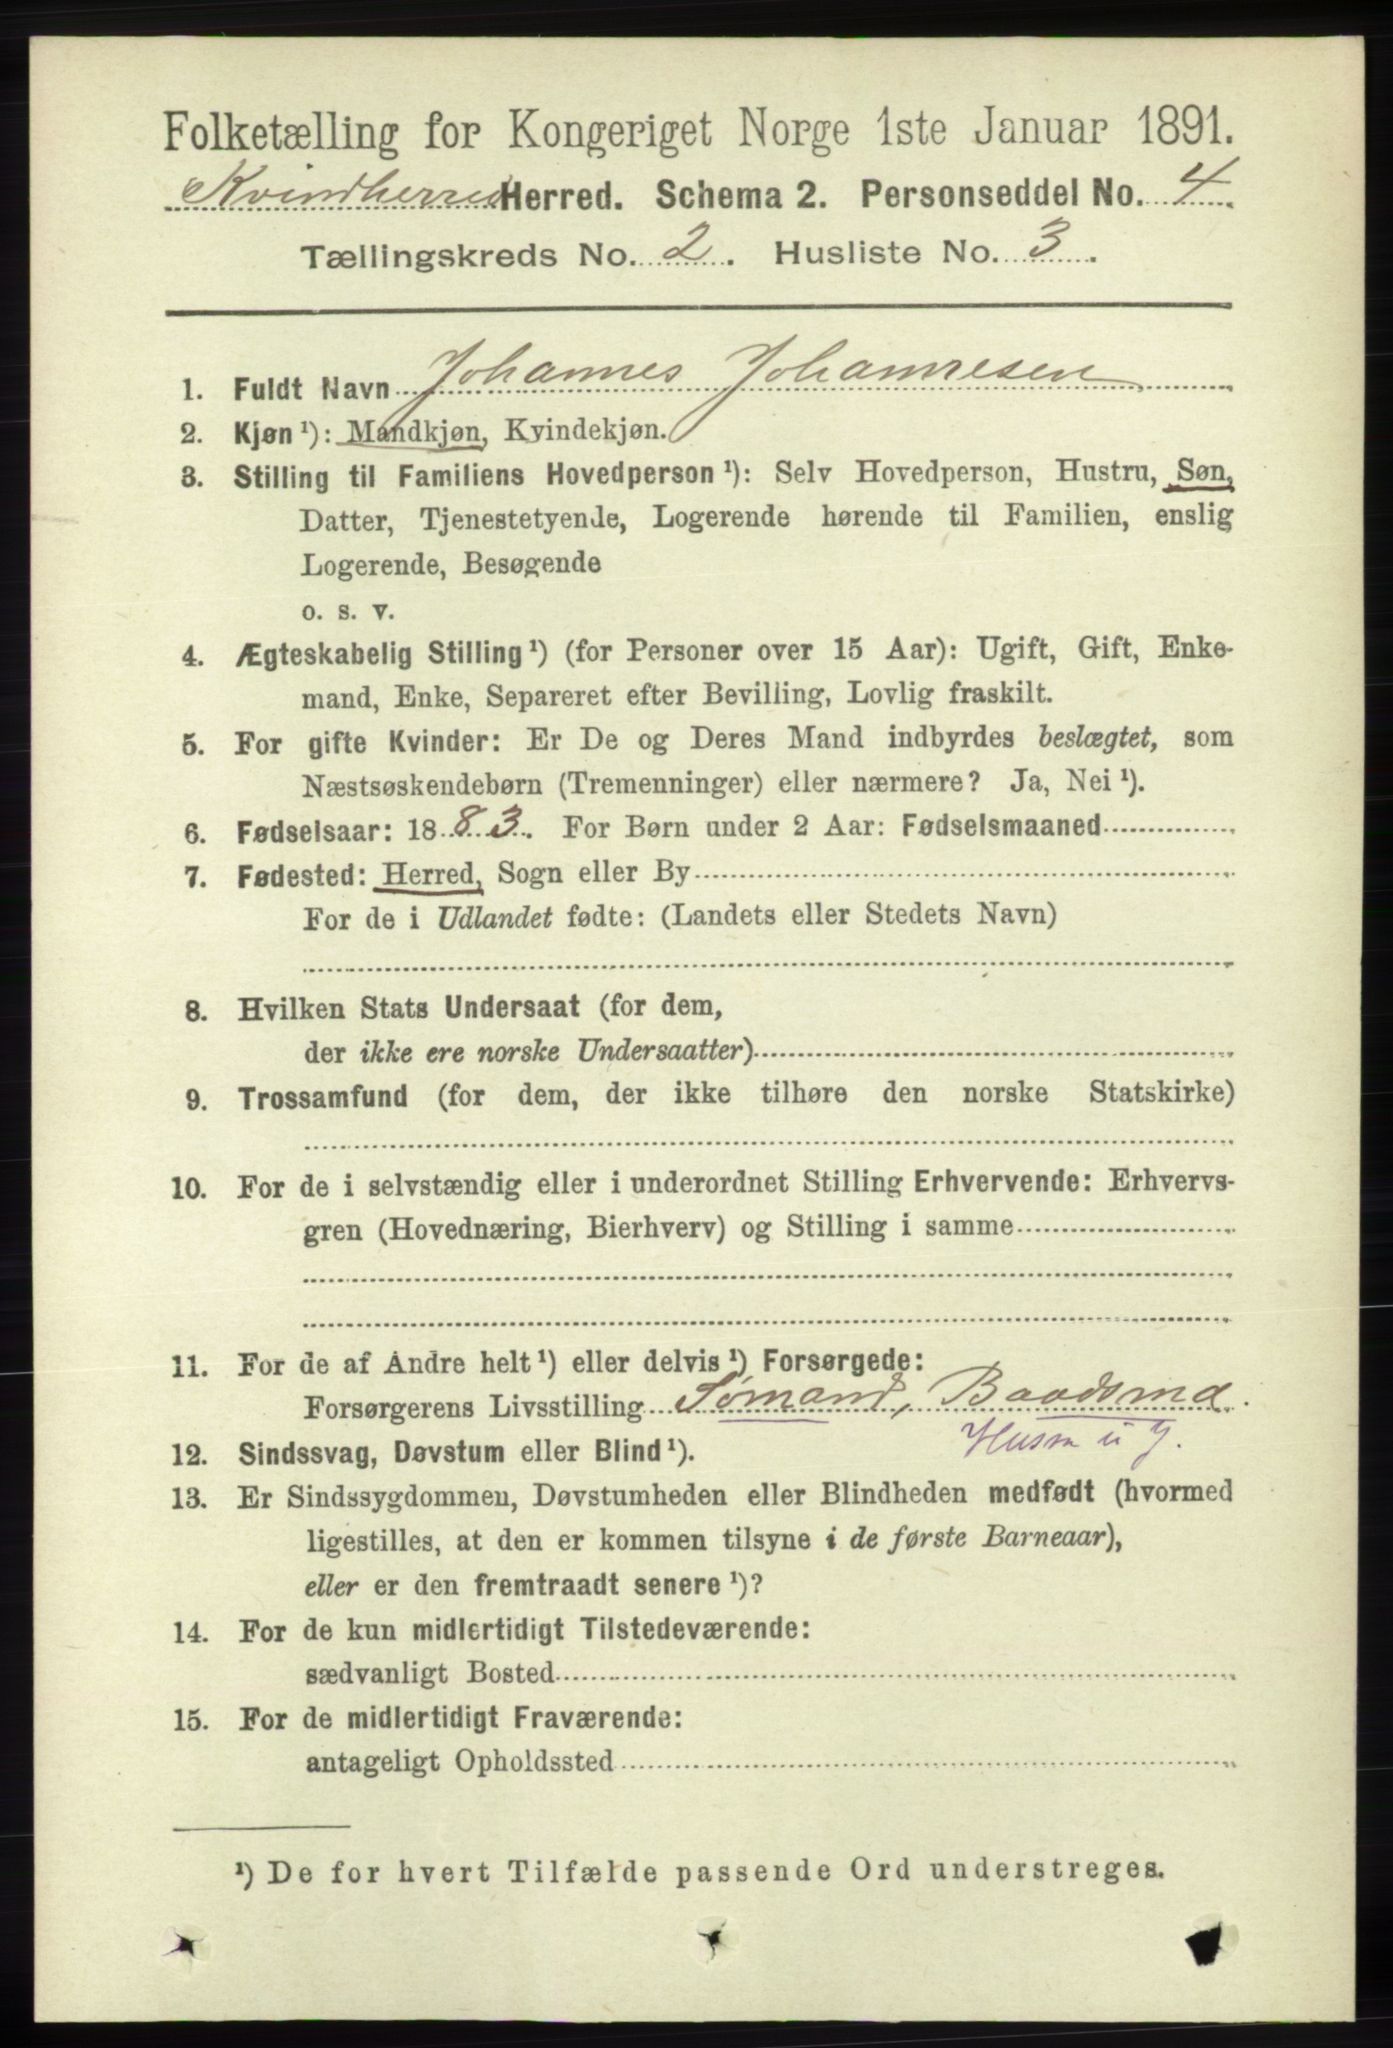 Folketælling for Kongeriget Norge 1ste Januar 1891.
Kvindherred Herred. Schema 2. Personseddel No. 4
Tællingskreds No. 2. Husliste No. 3.
1. Fuldt Navn Johannes Johannesen
2. Kjøn ¹): Mandkjøn, Kvindekjøn.
3. Stilling til Familiens Hovedperson ¹): Selv Hovedperson, Hustru, Søn,
Datter, Tjenestetyende, Logerende hørende til Familien, enslig
Logerende, Besøgende
o. s. v.
4. Ægteskabelig Stilling ¹) (for Personer over 15 Aar): Ugift, Gift, Enke-
mand, Enke, Separeret efter Bevilling, Lovlig fraskilt.
5. For gifte Kvinder: Er De og Deres Mand indbyrdes beslægtet, som
Næstsøskendebørn (Tremenninger) eller nærmere? Ja, Nei ¹).
6. Fødselsaar: 1883. For Børn under 2 Aar: Fødselsmaaned
7. Fødested: Herred, Sogn eller By
For de i Udlandet fødte: (Landets eller Stedets Navn)
8. Hvilken Stats Undersaat (for dem,
der ikke ere norske Undersaatter)
9. Trossamfund (for dem, der ikke tilhøre den norske Statskirke)
10. For de i selvstændig eller i underordnet Stilling Erhvervende: Erhvervs-
gren (Hovednæring, Bierhverv) og Stilling i samme
11. For de af Andre helt ¹) eller delvis ¹) Forsørgede:
Forsørgerens Livsstilling Sømand, Baadsmd.
Husm u j.
12. Sindssvag, Døvstum eller Blind ¹).
13. Er Sindssygdommen, Døvstumheden eller Blindheden medfødt (hvormed
ligestilles, at den er kommen tilsyne i de første Barneaar),
eller er den fremtraadt senere ¹)?
14. For de kun midlertidigt Tilstedeværende:
sædvanligt Bosted
15. For de midlertidigt Fraværende:
antageligt Opholdssted
¹) De for hvert Tilfælde passende Ord understreges.